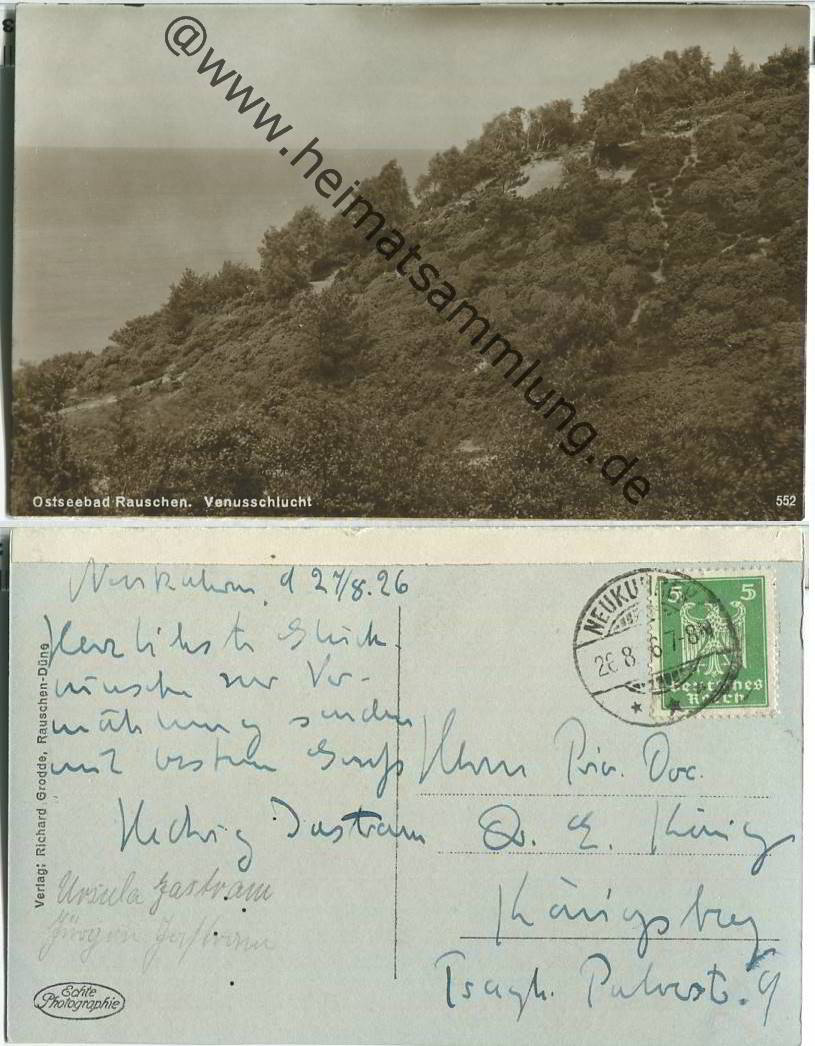 @www.heimatsammlung.de
Ostseebad Rauschen. Venusschlucht
552
Neukuhren, d 27/8.26
Herzlichste Glück-
wünsche zur Ver-
mählung senden
mit besten Gruß
Hedwig Jastram
Ursula Jastram
Jürgen Jastram
Verlag: Richard Grodde, Rauschen-Düne
Echte
Photographie
NEUKUHREN
26.8. 7-8
5 5
Deutsches
Reich
Herrn Priv. Doc.
Dr. E. König
Königsberg
Tragh. Pulverstr. 9